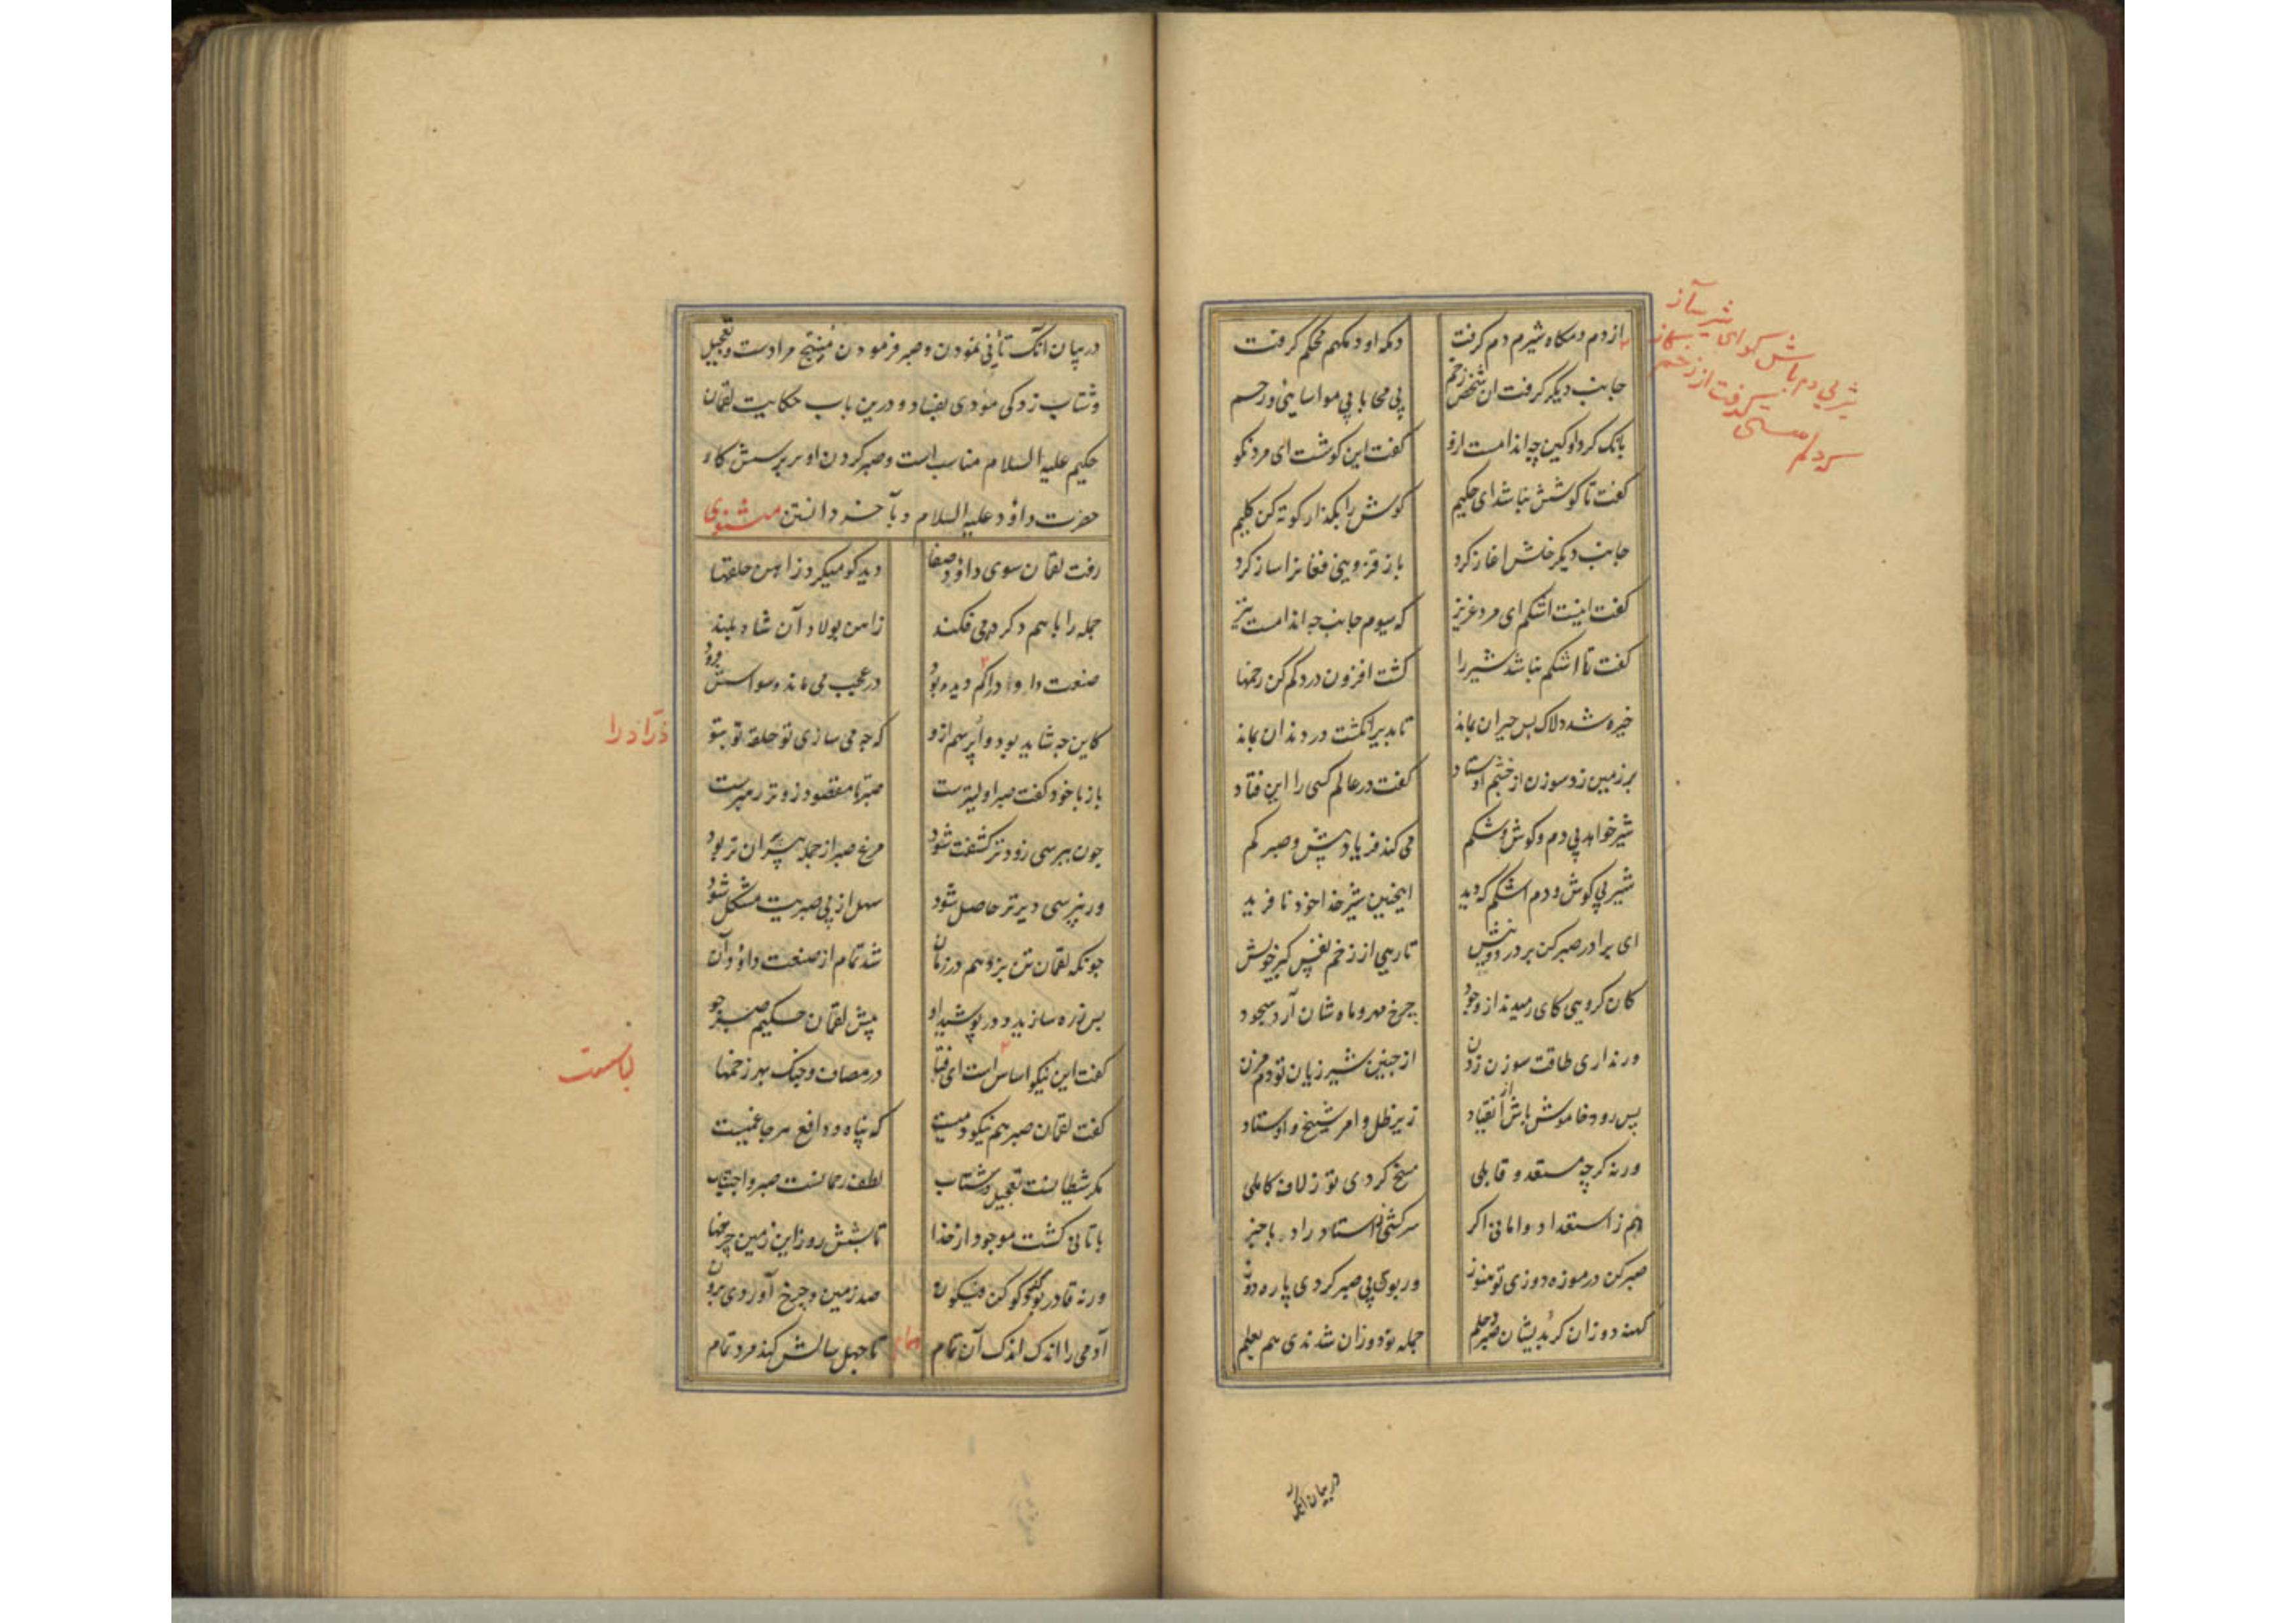 از دم و دمگاه شیرم دم گرفت دمگه او دمگهم محکم گرفت
جانب دیگر گرفت آن شخص زخم بی محابا بی مواسایی و رحم
بانگ کرد او کین چه اندامست ازو گفت این گوشست ای مرد نکو
گفت تا گوشش نباشد ای حکیم گوش را بگذار و کوته کن گلیم
جانب دیگر خلش آغاز کرد باز قزوینی فغانرا ساز کرد
که سیوم جانب چه اندامست نیز گفت اینست اشکم ای مرد عزیز
گفت تا اشکم نباشد شیر را گشت افزون درد کم کن زخمها
خیره شد دلاک بس حیران بماند تا بدیر انگشت در دندان بماند
بر زمین زد سوزن از خشم اوستاد گفت در عالم کسی را این فتاد
شیر خواهد بی دم و گوش و شکم می کند فریاد پیش و صبر کم
شیر بی گوش و دم اشکم که دید اینچنین شیر خدا خود نافرید
ای برادر صبر کن بر درد نیش تا رهی از زخم نفس گبر خویش
کان گروهی کای رمیدند از وجود چرخ مهر و ماه شان آرد سجود
ور نداری طاقت سوزن زدن از چنین شیر ژیان تو دم مزن
پس رو و خاموش باش از انقیاد زیر ظل و امر شیخ و اوستاد
ورنه گرچه مستعد و قابلی مسخ گردی تو ز لاف کاملی
هم ز استعداد وامانی اگر سرکشی ز استاد راد با خبر
صبر کن در موزه دوزی تو هنوز ور بوی بی صبر گردی پاره دوز
کهنه دوزان گر بدیشان صبر و حلم جمله نودوزان شدندی هم بعلم
در بیان آنکه
شیر بی دم باش گو ای شیر ساز
در بیان آنکه تأنی نمودن و صبر فرمودن منتج مرادست و تعجیل
و شتاب زدگی مودی بفساد و درین باب حکایت لقمان
حکیم علیه السلام مناسب است و صبر کردن او بر پرسش کار
حضرت داؤد علیه السلام و بآخر دانستن مثنوی
رفت لقمان سوی داؤد صفا دید کو میکرد ز آهن حلقها
جمله را با هم دگر در می فکند ز آهن پولاد آن شاه بلند
صنعت داود را کم دیده بود در عجب می ماند وسواسش فزود
کاین چه شاید بود وا پرسم ازو که چه می سازی تو حلقه تو بتو
باز با خود گفت صبر اولیترست صبر تا مقصود زوتر رهبرست
چون بپرسی زودتر کشفت شود مرغ صبر از جمله پران تر بود
ور نپرسی دیرتر حاصل شود سهل از بی صبریت مشکل شود
چونکه لقمان تن بزد هم در زمان شد تمام از صنعت داؤد آن
پس زره سازید و در پوشید او پیش لقمان حکیم صبر جو
گفت این نیکو لباس است ای فتا در مصاف و جنگ بهر زخمها
گفت لقمان صبر هم نیکو دمیست که پناه و دافع هر جا غمیست
مکر شیطانست تعجیل و شتاب لطف رحمانست صبر و احتساب
با تأنی گشت موجود از خدا تا بشش روز این زمین چرخها
ورنه قادر بود کو کن فیکون صد زمین و چرخ آوردی برون
آدمی را اندک اندک آن همام تا چهل سالش کند مرد تمام
زرادرا
لباست